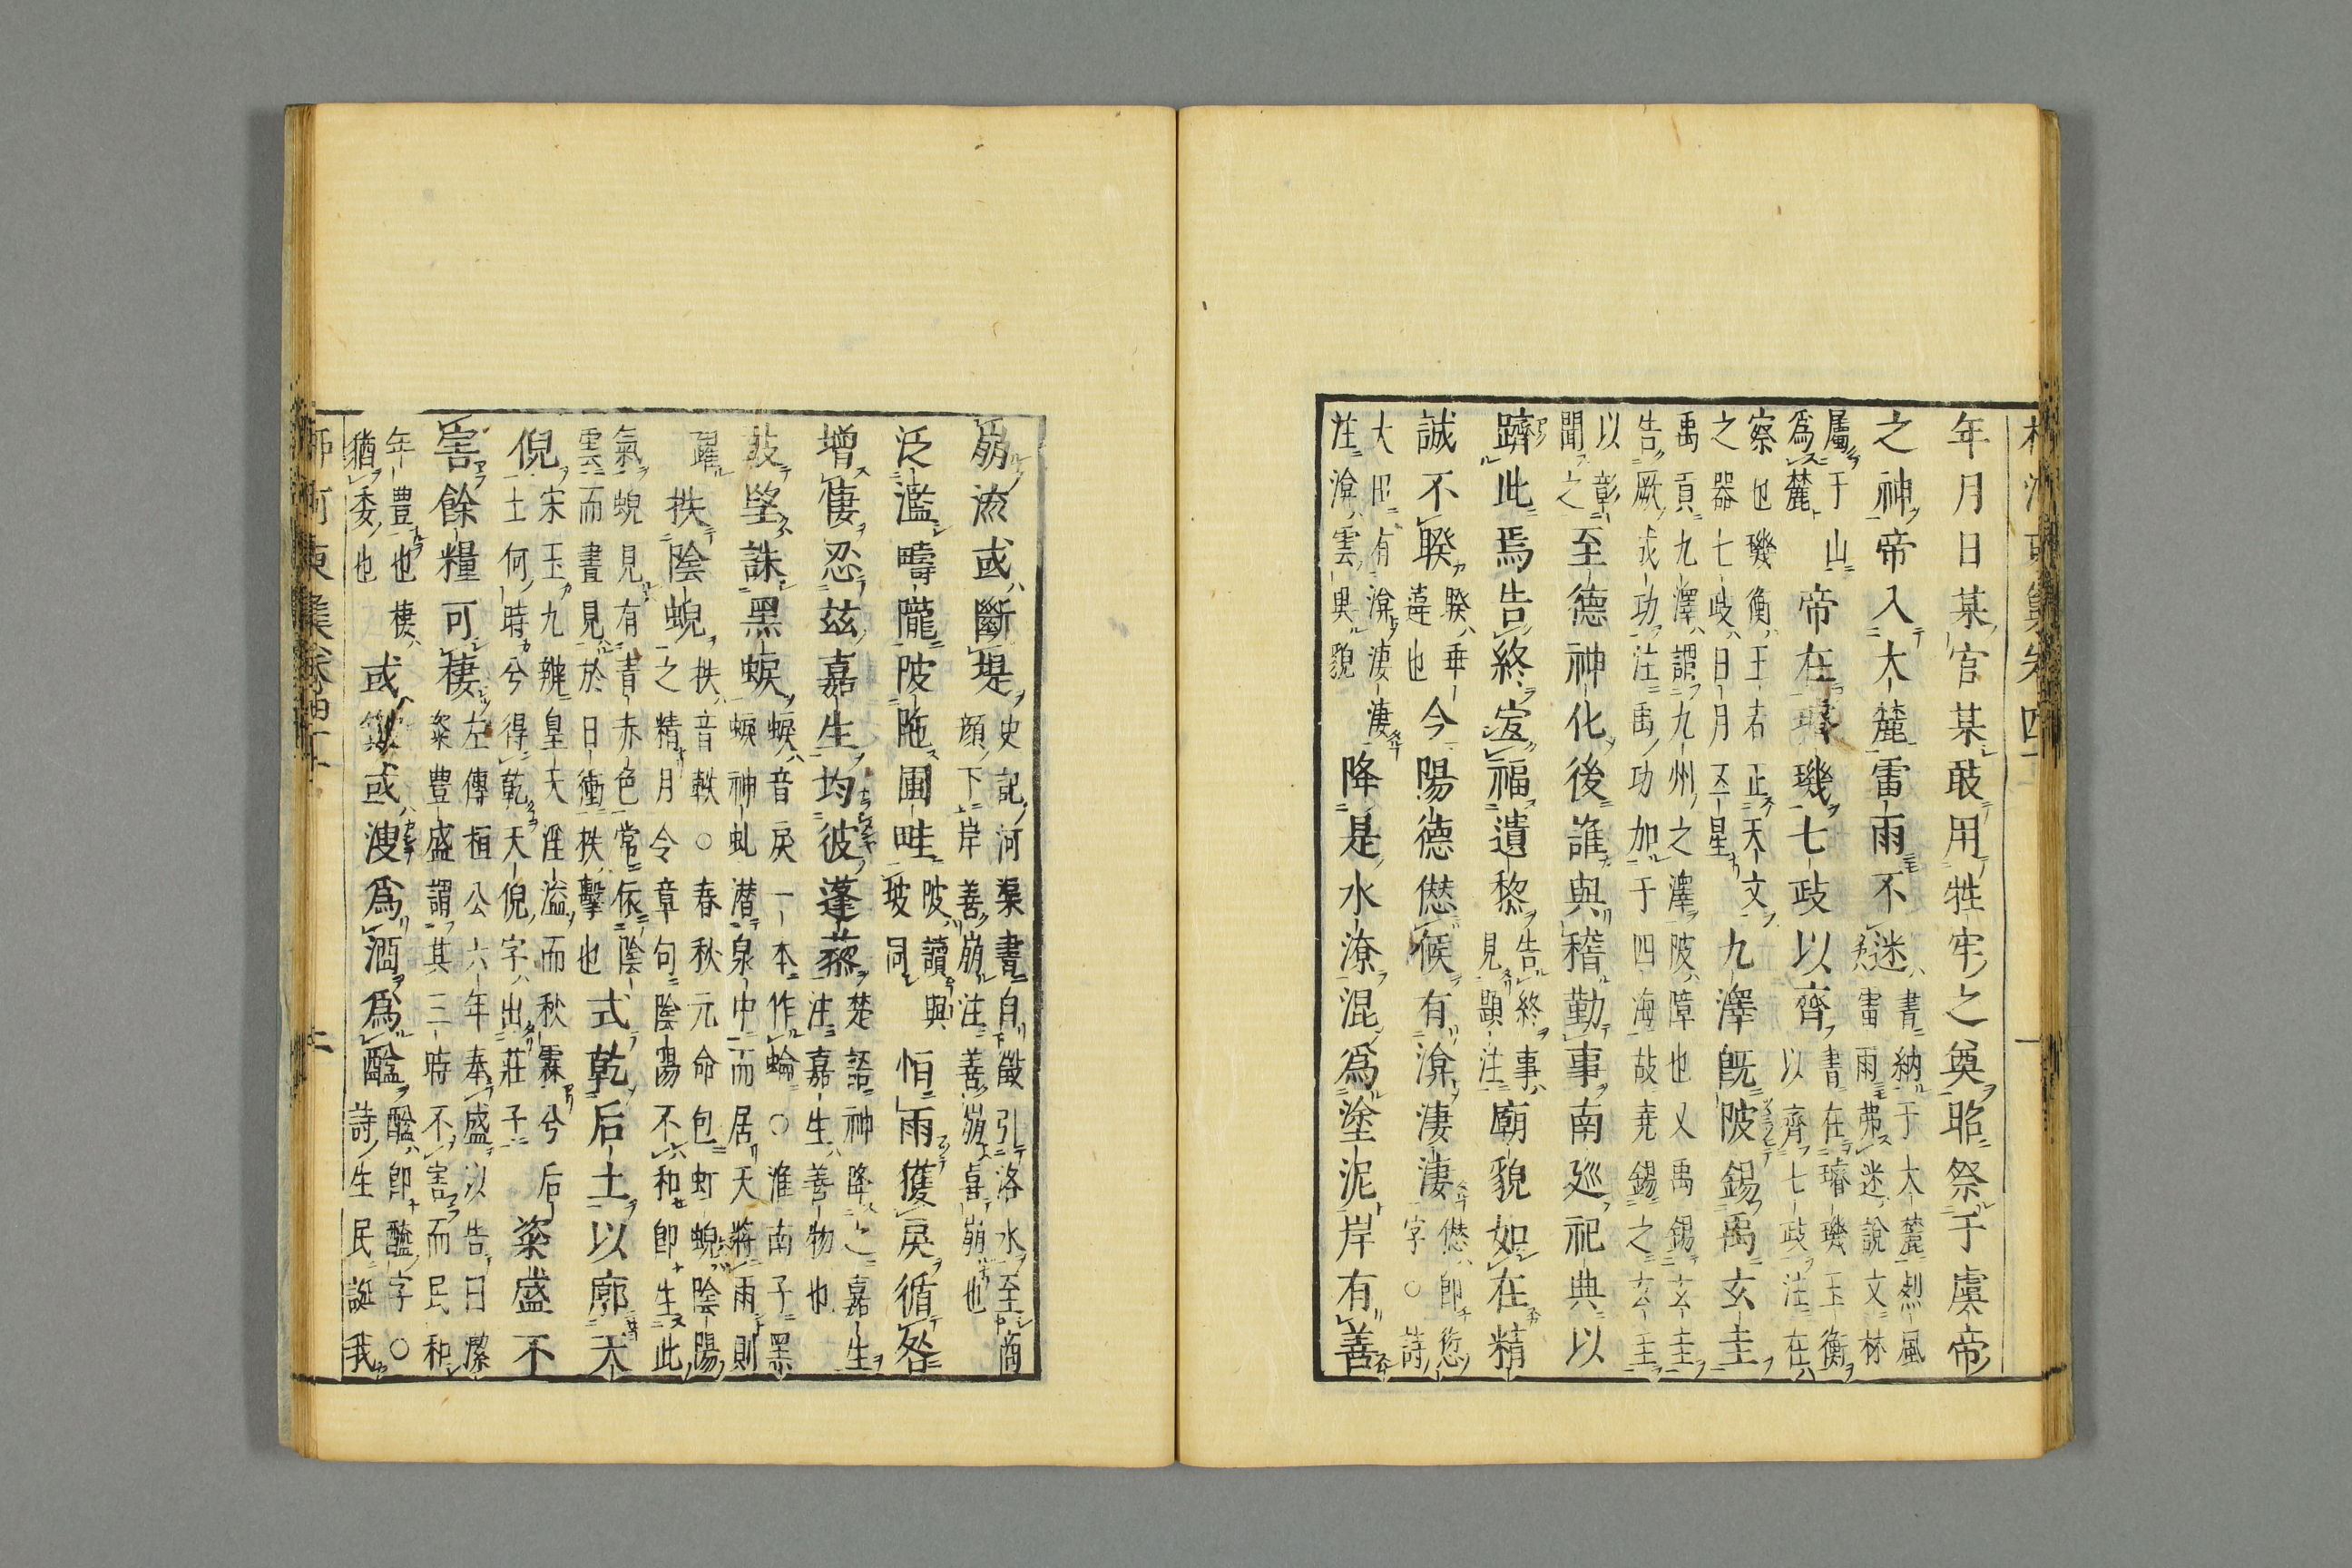 年月日某官某敢用牲牢之奠昭祭于虞帝
之神帝入大麓雷雨不迷書納于大麓烈風
雷雨弗迷說文林
屬于山
爲麓帝在璿璣七政以齊書在璿璣玉衡
以齊七政注在
察也璣衡王者正天文
之器七政日月五星九澤既陂錫禹玄圭
禹貢九澤謂九州之澤陂障也又禹錫玄圭
告厥成功注禹功加于四海故堯錫之玄圭
以彰
聞之至德神化後誰與稽勤事南巡祀典以
躋此焉告終宣福遺黎告終事
見題注廟貌如在精
誠不睽睽乖
違也今陽德愆候有渰淒淒愆即𠎝
字○詩
大田有渰淒淒
注渰雲興貌降是水潦混爲塗泥岸有善
崩流或斷堤史記河渠書自徵引洛水至商
顏下岸善崩注善崩喜崩也
泛濫疇隴陂陁圃畦陂讀與
坡同恒雨獲戾循咎
增悽忍茲嘉生均彼蓬蒢楚語神降之嘉生
注嘉生善物也
鼓望誅黑蜧蜧音戾一本作蜦○淮南子黑
蜧神虬潜泉中而居天將雨則
躍抶陰蜺抶音軼○春秋元命包虹蜺陰陽
之精月令章句陰陽不和即生此
氣蜺見有青赤色常依陰
雲而晝見於日衝抶擊也式乾后土以廓天
倪宋玉九辯皇天淫溢而秋霖兮后
土何時兮得乾天倪字出莊子粢盛不
害餘糧可棲左傳桓公六年奉盛以告曰潔
粢豊盛謂其三時不害而民和
年豊也棲
猶委也或簸或溲爲酒爲醯醯即醯字○
詩生民誕我